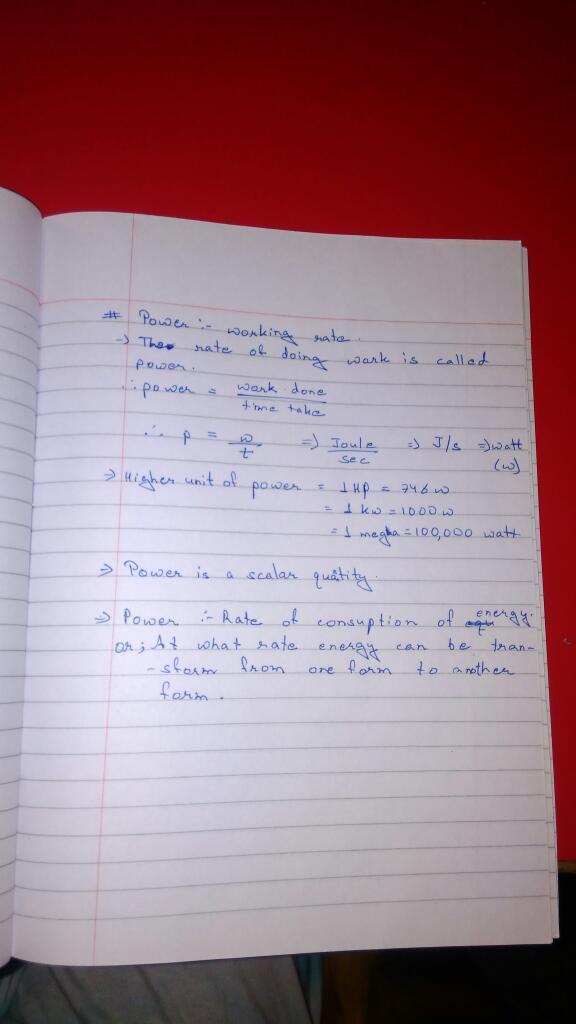 # Power :- working rate.
-) The rate of doing work is called
power.
∴ power = work done
time take
∴ p = w/t =) Joule/sec =) J/s =) watt
(w)
⇒ Higher unit of power = 1 HP = 746 w
= 1 kw = 1000 w
= 1 megha = 100,000 watt
⇒ Power is a scalar quātity.
⇒ Power :- Rate of consuption of energy.
or; At what rate energy can be tran-
-sform from one form to another
form.